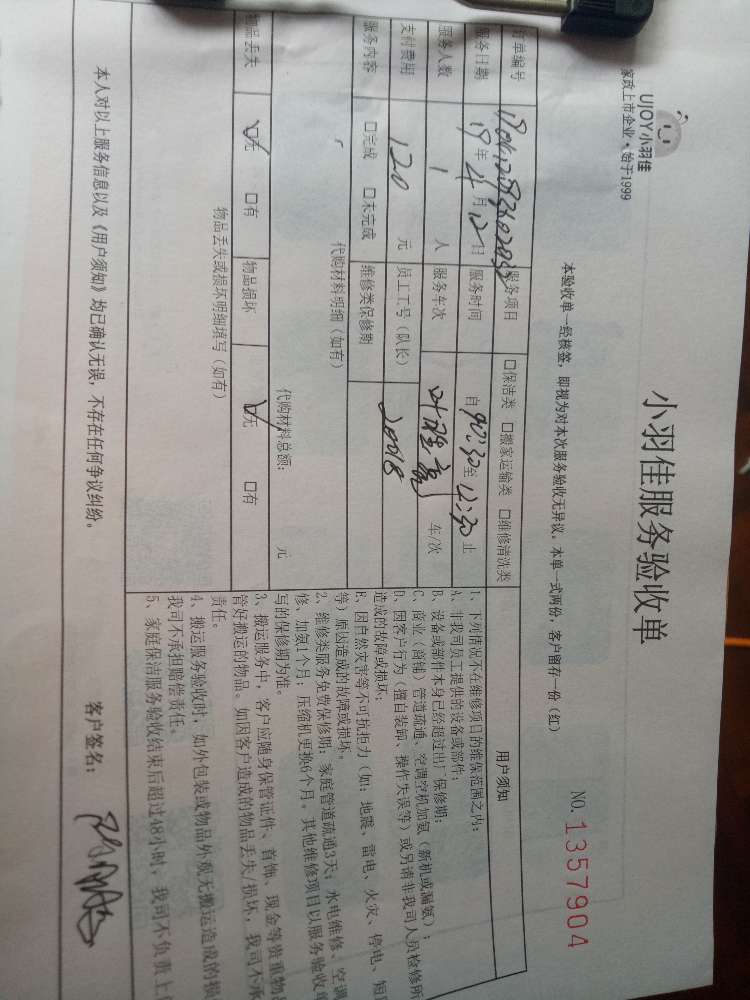 UJOY小羽佳
家政上市企业·始于1999
小羽佳服务验收单
本验收单一经核签，即视为对本次服务验收无异议，本单一式两份，客户留存一份（红）
NO. 1357904
订单编号
服务项目 □保洁类 □搬家运输类 □维修清洗类
服务日期 19 年 4 月 12 日 服务时间 自 至 止
服务人数 1 人 服务车次 车/次
支付费用 120 元 员工工号（队长）
服务内容 □完成 □未完成 维修类保修期
代购材料明细（如有）
代购材料总额： 元
物品丢失 ☑无 □有 物品损坏 ☑无 □有
物品丢失或损坏明细填写（如有）
用户须知
1、下列情况不在维修项目的维保范围之内：
A、非我司员工提供的设备或部件；
B、设备或部件本身已经超过出厂保修期；
C、商业（商铺）管道疏通、空调空机加氨（新机或漏氨）；
D、因客户行为（擅自装卸、操作失误等）或另请非我司人员检修所
造成的故障或损坏；
E、因自然灾害等不可抗拒力（如：地震、雷电、火灾、停电、短
等）原因造成的故障或损坏。
2、维修类服务免费保修期：家庭管道疏通3天；水电维修、空调
修、加氨1个月；压缩机更换6个月。其他维修项目以服务验收
写的保修期为准。
3、搬运服务中，客户应随身保管证件、首饰、现金等贵重物
管好搬运的物品。如因客户造成的物品丢失/损坏，我司不
责任。
4、搬运服务验收时，如外包装或物品外观无搬运造成的损
我司不承担赔偿责任。
5、家庭保洁服务验收结束后超过48小时，我司不负责上
本人对以上服务信息以及《用户须知》均已确认无误，不存在任何争议纠纷。
客户签名：